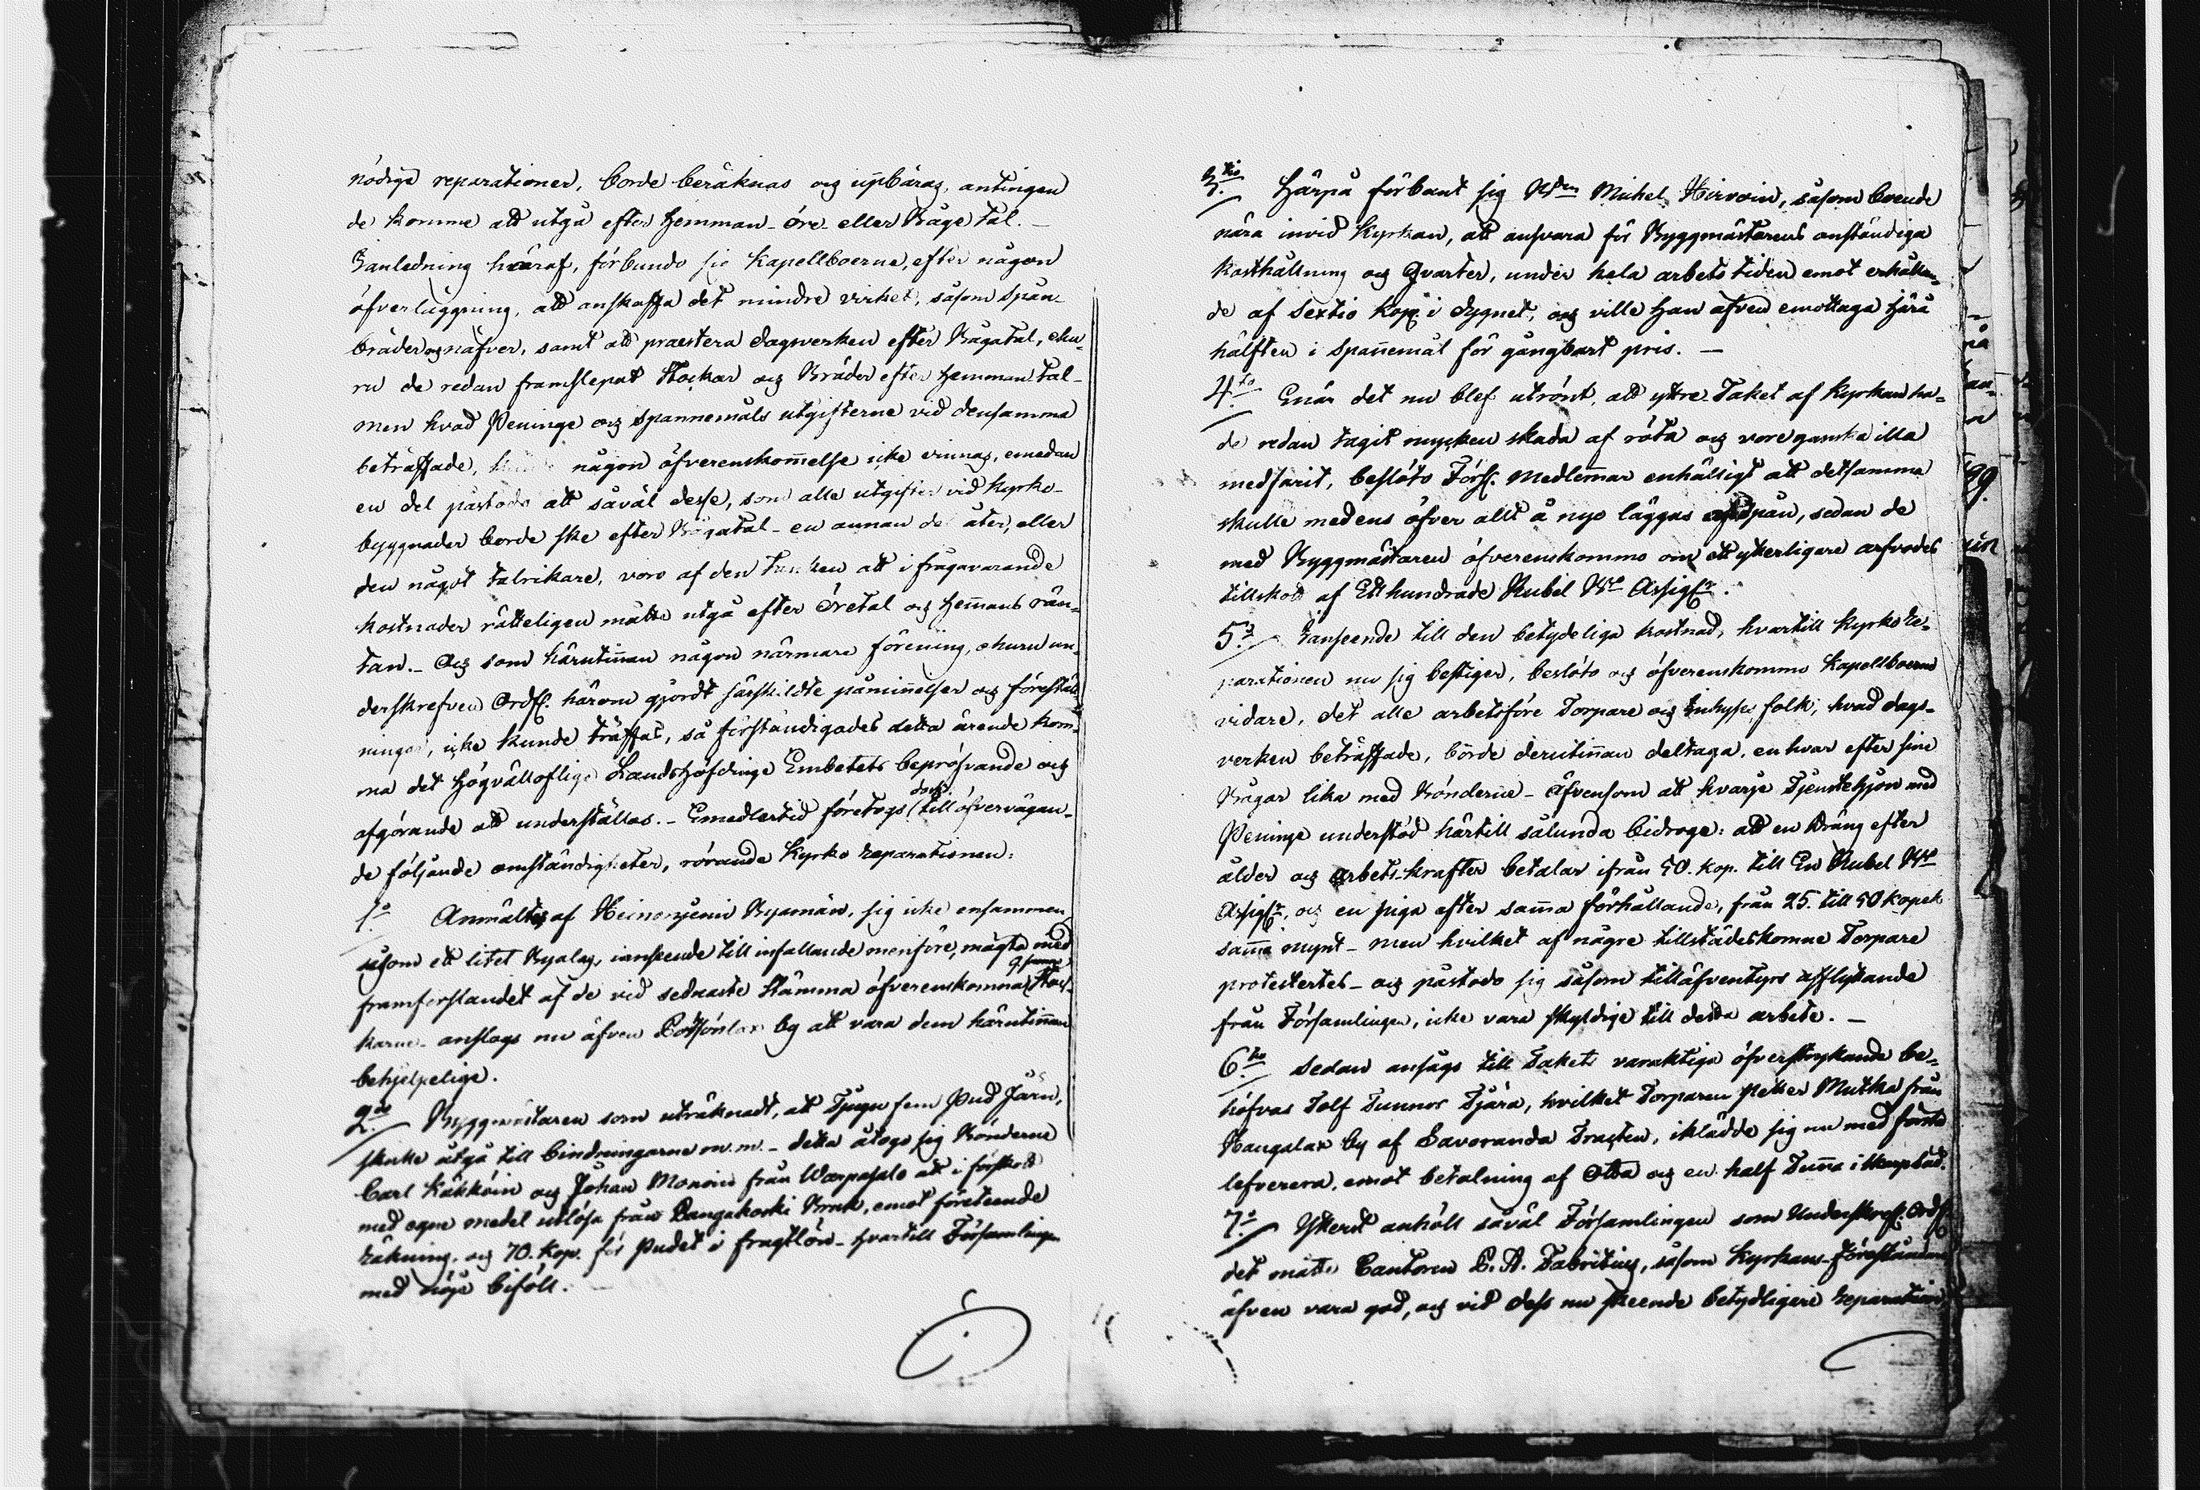 nödige reparationer, borde beräknas och uppbäras, antingen
de komme att utgå efter Hemman- öre- eller Råge tal. –
I anledning häraf, förbundo sig Kapellboerne, efter någon
öfverläggning, att anskaffa det mindre virket, såsom Spån-
bräder och näfver, samt att praestera dagsverken efter Rågatal, ehu-
ru de redan framslepat Stockar och Bräder efter hemman tal –
men hvad Peninge och Spannemåls utgifterne vid densamma
beträffade, kunde någon öfverenskommelse icke vinnas, emedan
en del påstodo att såväl desse, som alle utgifter vid Kyrko-
byggnader borde ske efter Rågatal – en annan del åter, eller
den något talrikare, voro af den tanken att i frågavarande
kostnader rätteligen måtte utgå efter Öretal och Hemans rän-
tan. – Och som härutinnan någon närmare förening, ehuru un-
derskrefven Ordf. härom gjordt särskildte påminnelser och föreställ-
ningar, icke kunde träffas, så förständigades detta ärende kom-
ma det Högvällofliga Landshöfdinge Embetets bepröfvande och
afgörande att underställas. – Emedlertid företogs dock till öfvervägan-
de följande omständigheter, rörande Kyrko reparationen:
1:o Anmältes af Heinonjemi Byamän, sig icke ensammen,
såsom ett litet Byalag, i anseende till infallande menföre, mägta med
framforslandet af de vid sednaste Stämma öfverenskomna Stoc-
karne – anslogs nu äfven by att vara dem härutinnan
behjelpelige.
2:do Byggmästaren som uträknadt, att Tjugu fem Pud Järn,
skulle åtgå till bindningarne m.m. – detta åtogo sig Bönderne
Carl Käkköin och Johan Mononin från Warpasalo att i förskott
med egne medel utlösa från Bruk, emot företeende
räkning, och 70. kop. för Pudet i fragtlön – hvartill Församlingen
med nöje biföll.
3:tio Härpå förbant sig Michel Hirvoin, såsom boende
nära invid Kyrkan, att ansvara för Byggmästarens anständiga
kosthållning och Qvarter, under hela arbets tiden emot erhållan-
de af Sextio kop. i dygnet, och ville han äfven emottaga hära
hälften i Spannemål för gångbart pris. –
4:to Enär det nu blef utrönt, att yttre Taket af Kyrkan ha-
de redan tagit mycken skada af röta och vore ganska illa
medfarit, beslöto Förs. Medlemmar enhälligt att detsamma
skulle med ens öfver allt å nyo läggas af Spån, sedan de
med Byggmästaren öfverenskommo om ett ytterligare arfvodes
tillskott af Etthundrade Rubel Assign:r.
5:o I anseende till den betydeliga kostnad, hvartill Kyrko re-
parationen nu sig bestiger, beslöto och öfverenskommo Kapellboerne
vidare, det alle arbetsföre Torpare och Inhyses folk, hvad dags-
verken beträffade, börde derutinnan deltaga, en hvar efter sine
Rågar lika med Bönderne – äfvensom att hvarje Tjenstehjon med
Peninge understöd härtill sålunda bidroge: att en Dräng efter
ålder och arbets-krafter betalar ifrån 50. kop. till En Rubel
Assign:r, och en piga efter samma förhållande, från 25. till 50 kopek
samma mynt – men hvilket af några tillstädeskomne Torpare
protestertes – och påstodo sig såsom till äfventyrs afflyttande
från Församlingen, icke vara skyldige till detta arbete. –
6:to Sedan ansågs till Takets varaktiga öfverstrykande be-
höfvas Tolf Tunnor Tjära, hvilket Torparen Petter Mutka från
by af Savoranda Tragten, iklädde sig nu med första
lefverera, emot betalning af Otta och en half Tunna i
7:o Ytterst anhöll såväl Församlingen som Underskref. Ordf.
det måtte Cantoren Fabritius, såsom Kyrkans Föreståndare
äfven vara god, och vid dess nu skeende betydligere reparation